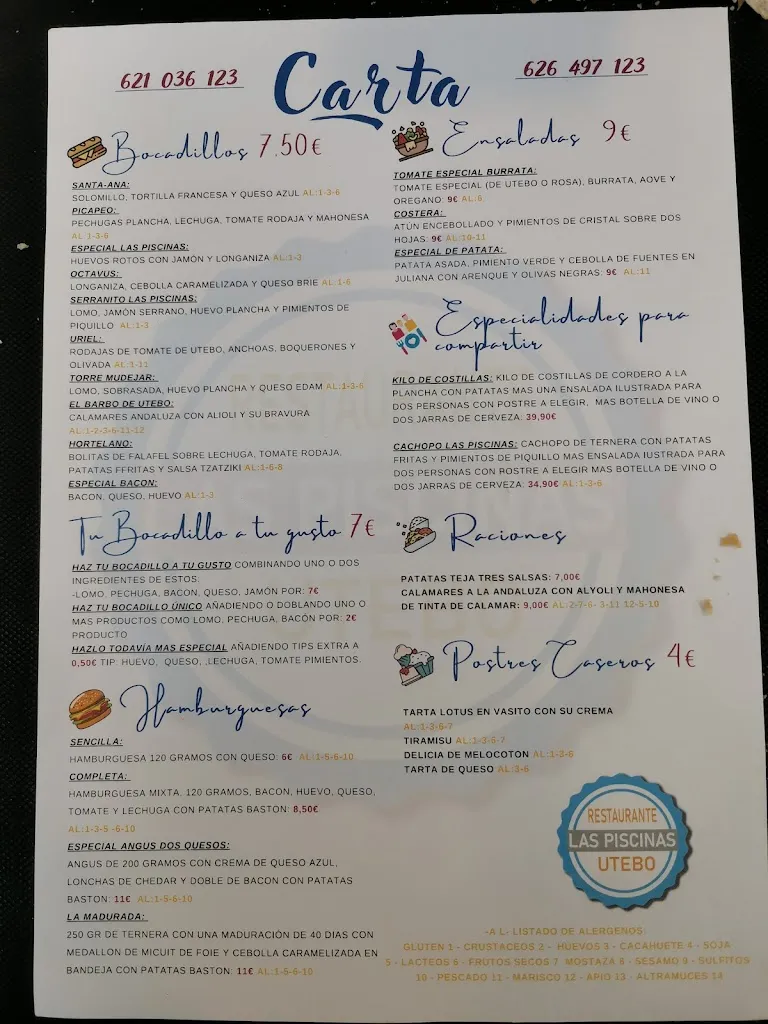 621 036 123
Carta
626 497 123
Bocadillos 7.50€
SANTA-ANA:
SOLOMILLO, TORTILLA FRANCESA Y QUESO AZUL AL:1-3-6
PICAPEO:
PECHUGAS PLANCHA, LECHUGA, TOMATE RODAJA Y MAHONESA
AL:1-3-6
ESPECIAL LAS PISCINAS:
HUEVOS ROTOS CON JAMÓN Y LONGANIZA AL:1-3
OCTAVUS:
LONGANIZA, CEBOLLA CARAMELIZADA Y QUESO BRIE AL:1-6
SERRANITO LAS PISCINAS:
LOMO, JAMÓN SERRANO, HUEVO PLANCHA Y PIMIENTOS DE
PIQUILLO AL:1-3
URIEL:
RODAJAS DE TOMATE DE UTEBO, ANCHOAS, BOQUERONES Y
OLIVADA AL:1-11
TORRE MUDEJAR:
LOMO, SOBRASADA, HUEVO PLANCHA Y QUESO EDAM AL:1-3-6
EL BARBO DE UTEBO:
CALAMARES ANDALUZA CON ALIOLI Y SU BRAVURA
AL:1-2-3-6-11-12
HORTELANO:
BOLITAS DE FALAFEL SOBRE LECHUGA, TOMATE RODAJA,
PATATAS FFRITAS Y SALSA TZATZIKI AL:1-6-8
ESPECIAL BACON:
BACON, QUESO, HUEVO AL:1-3
Tu Bocadillo a tu gusto 7€
HAZ TU BOCADILLO A TU GUSTO COMBINANDO UNO O DOS
INGREDIENTES DE ESTOS:
-LOMO, PECHUGA, BACON, QUESO, JAMÓN POR: 7€
HAZ TU BOCADILLO ÚNICO AÑADIENDO O DOBLANDO UNO O
MAS PRODUCTOS COMO LOMO, PECHUGA, BACÓN POR: 2€
PRODUCTO
HAZLO TODAVÍA MAS ESPECIAL AÑADIENDO TIPS EXTRA A
0,50€ TIP: HUEVO, QUESO, ,LECHUGA, TOMATE PIMIENTOS.
Hamburguesas
SENCILLA:
HAMBURGUESA 120 GRAMOS CON QUESO: 6€ AL:1-5-6-10
COMPLETA:
HAMBURGUESA MIXTA. 120 GRAMOS, BACON, HUEVO, QUESO,
TOMATE Y LECHUGA CON PATATAS BASTON: 8,50€
AL:1-3-5 -6-10
ESPECIAL ANGUS DOS QUESOS:
ANGUS DE 200 GRAMOS CON CREMA DE QUESO AZUL,
LONCHAS DE CHEDAR Y DOBLE DE BACON CON PATATAS
BASTON: 11€ AL:1-5-6-10
LA MADURADA:
250 GR DE TERNERA CON UNA MADURACIÓN DE 40 DIAS CON
MEDALLON DE MICUIT DE FOIE Y CEBOLLA CARAMELIZADA EN
BANDEJA CON PATATAS BASTON: 11€ AL:1-5-6-10
Ensaladas 9€
TOMATE ESPECIAL BURRATA:
TOMATE ESPECIAL (DE UTEBO O ROSA), BURRATA, AOVE Y
OREGANO: 9€ AL:6
COSTERA:
ATÚN ENCEBOLLADO Y PIMIENTOS DE CRISTAL SOBRE DOS
HOJAS: 9€ AL:10-11
ESPECIAL DE PATATA:
PATATA ASADA, PIMIENTO VERDE Y CEBOLLA DE FUENTES EN
JULIANA CON ARENQUE Y OLIVAS NEGRAS: 9€ AL:11
Especialidades para
compartir
KILO DE COSTILLAS: KILO DE COSTILLAS DE CORDERO A LA
PLANCHA CON PATATAS MAS UNA ENSALADA ILUSTRADA PARA
DOS PERSONAS CON POSTRE A ELEGIR, MAS BOTELLA DE VINO O
DOS JARRAS DE CERVEZA: 39,90€
CACHOPO LAS PISCINAS: CACHOPO DE TERNERA CON PATATAS
FRITAS Y PIMIENTOS DE PIQUILLO MAS ENSALADA IUSTRADA PARA
DOS PERSONAS CON ROSTRE A ELEGIR MAS BOTELLA DE VINO O
DOS JARRAS DE CERVEZA: 34,90€ AL:1-3-6
Raciones
PATATAS TEJA TRES SALSAS: 7,00€
CALAMARES A LA ANDALUZA CON ALYOLI Y MAHONESA
DE TINTA DE CALAMAR: 9,00€ AL:2-7-6- 3-11 12-5-10
Postres Caseros 4€
TARTA LOTUS EN VASITO CON SU CREMA
AL:1-3-6-7
TIRAMISU AL:1-3-6-7
DELICIA DE MELOCOTON AL:1-3-6
TARTA DE QUESO AL:3-6
RESTAURANTE
LAS PISCINAS
UTEBO
-A L- LISTADO DE ALERGENOS:
GLUTEN 1 - CRUSTACEOS 2 - HUEVOS 3 - CACAHUETE 4 - SOJA
5 - LACTEOS 6 - FRUTOS SECOS 7 MOSTAZA 8 - SESAMO 9 - SULFITOS
10 - PESCADO 11 - MARISCO 12 - APIO 13 - ALTRAMUCES 14